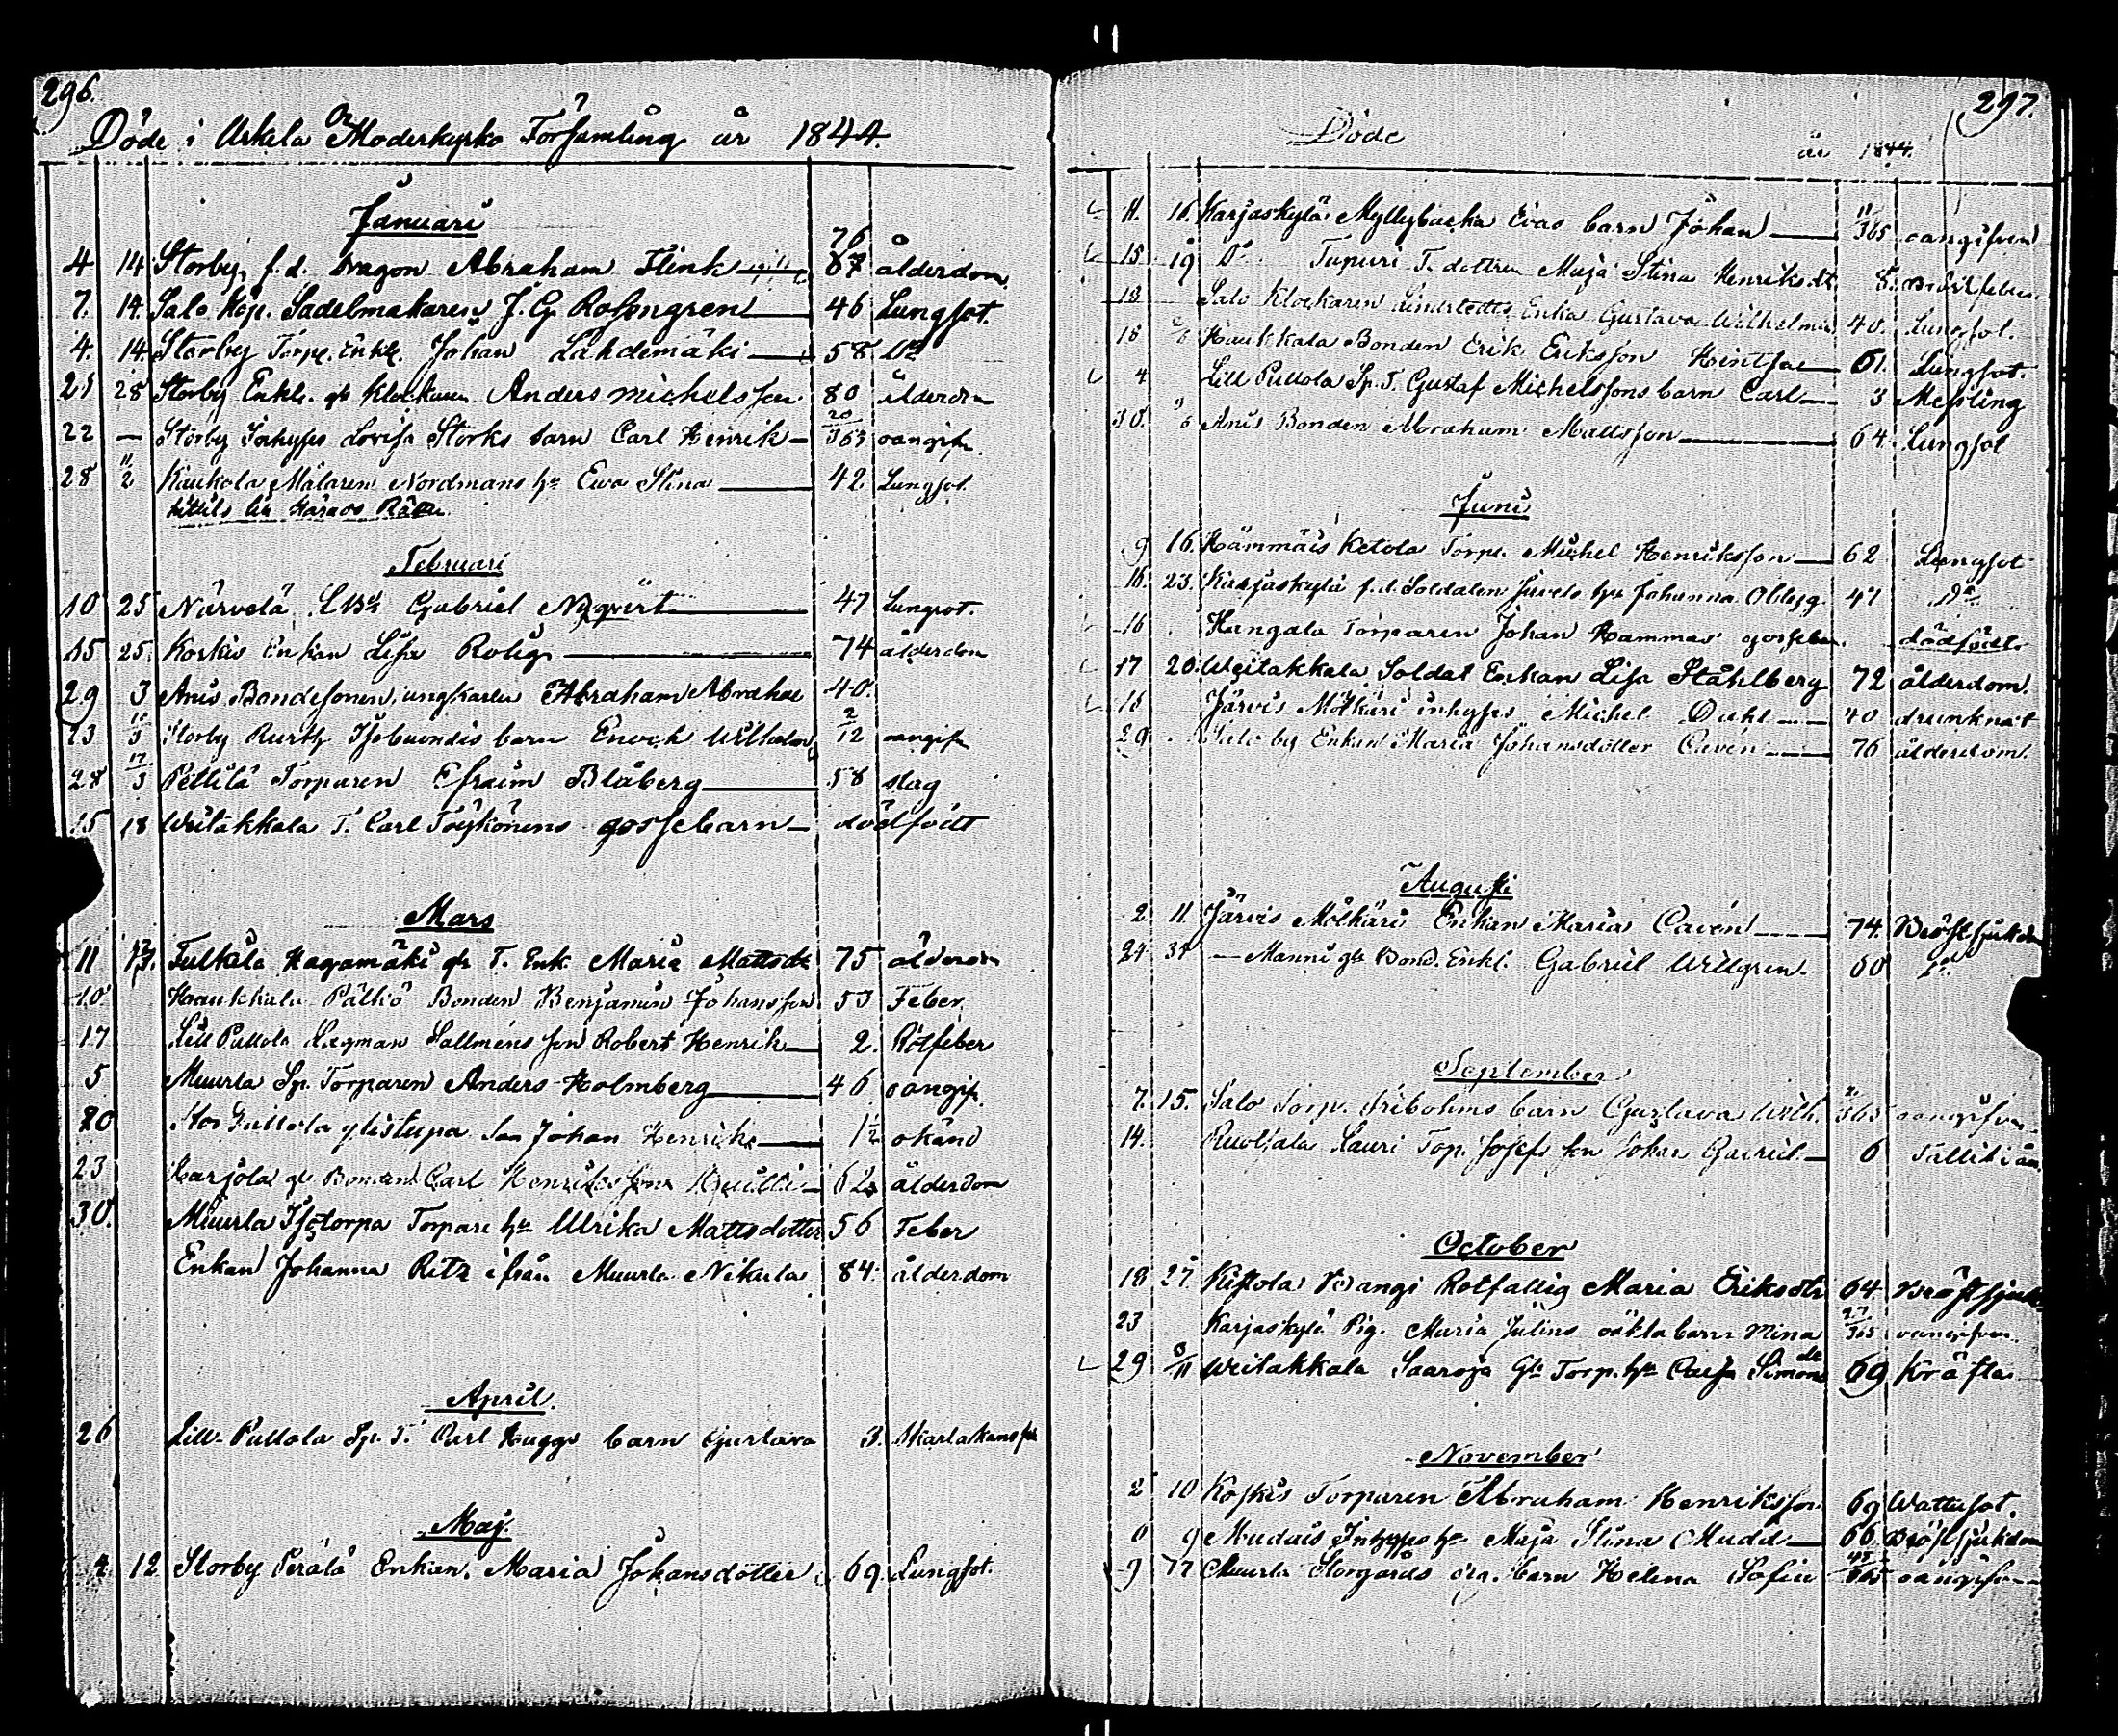 296.
Döde i Uskela Moderkyrko Församling år 1844.
Januari
4 14 Storby, f.d. Dragon Abraham Flink 76 87 ålderdom
7. 14. Salo Köp. Sadelmakaren J. G. Rosengren 46 Lungsot.
4. 14 Storby Torp. Enkl. Johan Lähdemäki 58 Do
21 28 Storby Enkl. gl. Klockaren Anders Michelsson 80 ålderdom
22 — Storby Inhyses Lovisa Storks barn Carl Henrik 20/365 oangifv.
28 11/2 Kaukola Målaren Nordmans hu Ewa Stina 42 Lungsot.
Februari
10 25 Närvelä Gabriel Nyqvist 47 Lungsot.
15 25. Koskis Enkan Lisa Rolig 74 ålderdom
29 3 Anis Bondesonen, ungkarlen Abraham Abraham 40.
23 10/3 Storby barn Enock Wilhelm 2/12 oangifv
28 17/3 Pettilä Torparen Efraim Blåberg 58 slag
15 18 Weitakkala T. Carl Töykönens gossebarn — dödfödt
Mars
11 17. Tulkila Hagamäki gl. T. Enk. Maria Mattsdr 75 ålderdom
10 Haukkala Pälkö Bonden Benjamin Johansson 53 Feber.
17 Lill Pullola Lägman Sallmens son Robert Henrik 2. Rötfeber
5 Muurla Sp. Torparen Anders Holmberg 46 oangifv.
20 Stor Pullola ylistupa son Johan Henrik 1½ okänd
23 Karjola gl. Bonden Carl Henriksson 62 ålderdom
30. Muurla Isotorpa Torpare hu Ulrika Mattsdotter 56 Feber
Enkan Johanna Ritz ifrån Muurla Nikula 84. ålderdom
April.
26 Lill-Pullola Sp. T. Carl Huggs barn Gustava 3. Skarlakansf
Maj.
4 12 Storby Perälä Enkan Maria Johansdotter 69. Lungsot.
297.
Döde år 1844.
11. 16. Karjaskylä Myllybacka Evas barn Johan 11/365 oangifven
15 19 Do Tupuri T. dottren Maja Stina Henriksdr 8.
18 Salo Klockaren Lindstedts Enka Gustava Wilhelmina 40. Lungsot.
18 Haukkala Bonden Erik Eriksson 61. Lungsot
4 Lill Pullola Sp. T. Gustaf Michelssons barn Carl 3 Messling
30. Anis Bonden Abraham Mattsson 64. Lungsot
Juni
9 16. Hämmäis Ketola Torp. Michel Henriksson 62 Lungsot
16. 23. Karjaskylä f.d. Soldaten hu Johanna 47 Do
16 Hangala Torparen Johan Hammas gossebarn dödfödt.
17 20. Weitakkala Soldat Enkan Lisa Ståhlberg 72 ålderdom.
18 Järvis Mölkäri inhyses Michel Dahl 40 drunknat
29 Salo by Enkan Maria Johansdotter Cavén 76 ålderdom.
Augusti
2 11. Järvis Mölkäri Enkan Maria Cavén 74. Bröstsjukdom
24 31 Manni gl. Bond. Enkl. Gabriel Willgren 60 Do
September
7. 15. Salo Torp. Fribohms barn Gustava Wilh. 365 oangifven
14. Ruotsala Lauri Torp. Josefs son Johan Gabriel 6
October
18 27 Kistola Bangi Rotfattig Maria Eriksdtr 64. Bröstsjukd
23 Karjaskylä Pig. Maria Julins oäkta barn Mina 27/365 oangifven.
29 3/11 Weitakkala Saaroja Gl. Torp. hu Caisa Simonsdr 69 Kräfta
November
2 10 Koskis Torparen Abraham Henriksson 69 Wattusot
6 9 Mudais Inhyses hu Maja Stina Mudd 66 Bröstsjukdom
9 17 Muurla Storgårds barn Helena Sofia 45/365 oangifven